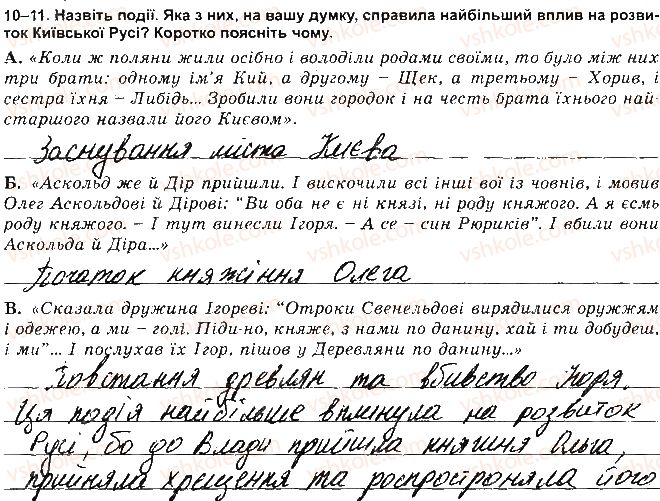 10–11. Назвіть події. Яка з них, на вашу думку, справила найбільший вплив на розви-
ток Київської Русі? Коротко поясніть чому.
А. «Коли ж поляни жили осібно і володіли родами своїми, то було між них
три брати: одному ім'я Кий, а другому – Щек, а третьому – Хорив, і
сестра їхня – Либідь... Зробили вони городок і на честь брата їхнього най-
старшого назвали його Києвом».
Заснування міста Києва
Б. «Аскольд же й Дір прийшли. І вискочили всі інші вої із човнів, і мовив
Олег Аскольдові й Дірові: "Ви оба не є ні князі, ні роду княжого. А я єсмь
роду княжого. – І тут винесли Ігоря. – А се – син Рюриків". І вбили вони
Аскольда й Діра...»
Початок княжіння Олега
В. «Сказала дружина Ігореві: "Отроки Свенельдові вирядилися оружжям
і одежею, а ми – голі. Піди-но, княже, з нами по данину, хай і ти добудеш,
і ми"... І послухав їх Ігор, пішов у Деревляни по данину...»
Повстання древлян та вбивство Ігоря.
Ця подія найбільше вплинула на розвиток
Русі, бо до Влади прийшла княгиня Ольга,
прийняла хрещення та роспространяла його